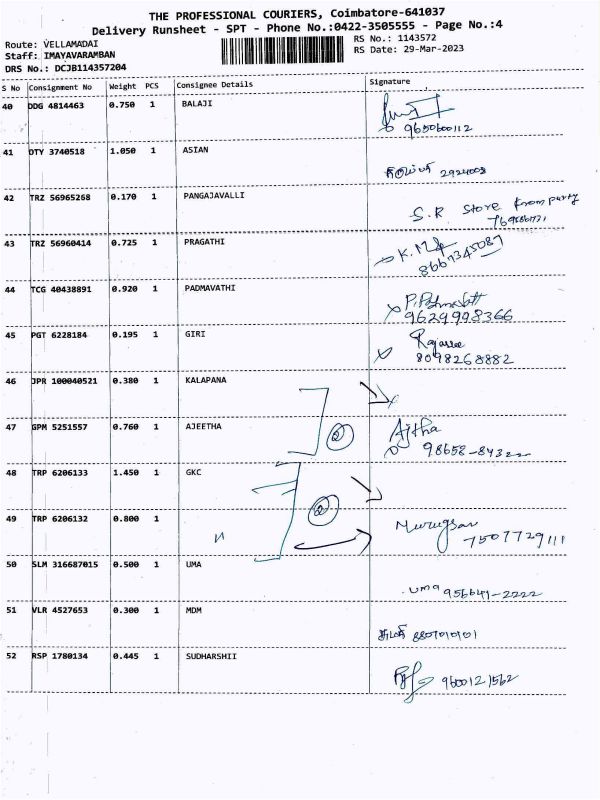 THE PROFESSIONAL COURIERS, Coimbatore-641037
Delivery Runsheet - SPT - Phone No.:0422-3505555 - Page No.:4
Route: VELLAMADAI
RS No.: 1143572
Staff: IMAYAVARAMBAN
RS Date: 29-Mar-2023
DRS No.: DCJB114357204
S No Consignment No Weight PCS Consignee Details Signature
40 DDG 4814463 0.750 1 BALAJI
9650600112
41 DTY 3740518 1.050 1 ASIAN
2924003
42 TRZ 56965268 0.170 1 PANGAJAVALLI
S.R Store from party
43 TRZ 56960414 0.725 1 PRAGATHI
8667345087
44 TCG 40438891 0.920 1 PADMAVATHI
9629998366
45 PGT 6228184 0.195 1 GIRI
8098268882
46 JPR 100040521 0.380 1 KALAPANA
47 GPM 5251557 0.760 1 AJEETHA
② Ajtha
98658-84322
48 TRP 6206133 1.450 1 GKC
②
49 TRP 6206132 0.800 1
〃 Murugsan
7507729111
50 SLM 316687015 0.500 1 UMA
uma 956641-2222
51 VLR 4527653 0.300 1 MDM
8807010101
52 RSP 1780134 0.445 1 SUDHARSHII
9600121562